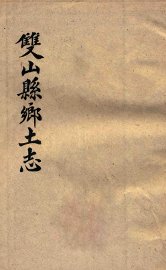 雙山縣鄉土志